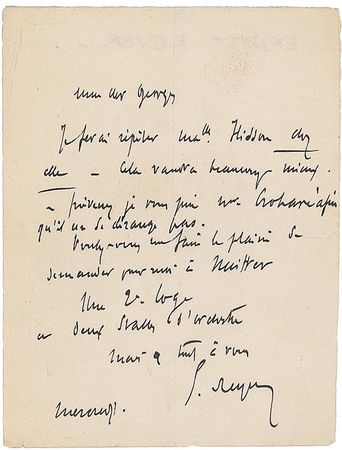 mon cher Georges
Je ferai répéter Mlle Hisson chez
elle – Cela vaudra beaucoup mieux.
– prévenez je vous prie afin
qu'il ne se dérange pas.
Voulez-vous me faire le plaisir de
demander pour moi à Nuitter
Une 2e loge
ou Deux Stalles d'orchestre
tout à vous
E. Reyer
mercredi.